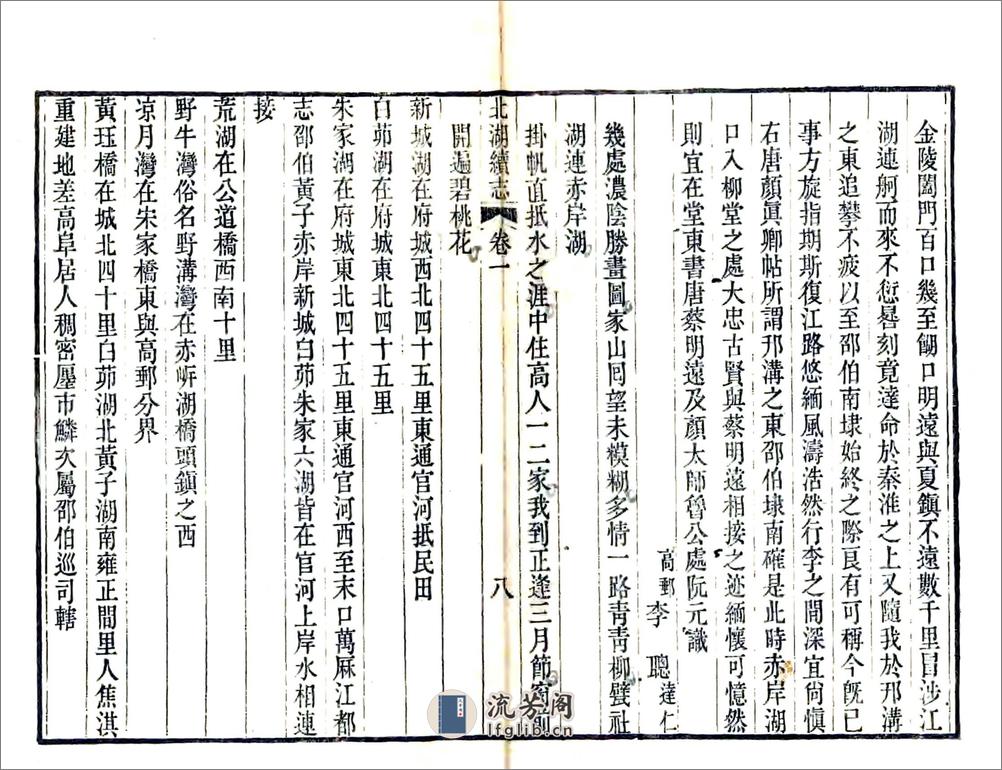 金陵闔門百口幾至餬口明遠與夏鎮不遠數千里冒涉江
湖連舸而來不愆晷刻竟達命於秦淮之上又隨我於邗溝
之東追攀不疲以至邵伯南埭始終之際良有可稱今旣已
事方旋指期斯復江路悠緬風濤浩然行李之間深宜尙慎
右唐顏眞卿帖所謂邗溝之東邵伯埭南確是此時赤岸湖
口入柳堂之處大忠古賢與蔡明遠相接之迹緬懷可憶然
則宜在堂東書唐蔡明遠及顏太師魯公處阮元識
高郵李聰達仁
幾處濃陰勝畫圖家山囘望未模糊多情一路靑靑柳甓社
湖連赤岸湖
掛帆直抵水之涯中住高人一二家我到正逢三月節窗前
開遍碧桃花
北湖續志 卷一 八
新城湖在府城西北四十五里東通官河抵民田
白茆湖在府城東北四十五里
朱家湖在府城東北四十五里東通官河西至末口萬厤江都
志邵伯黃子赤岸新城白茆朱家六湖皆在官河上岸水相連
接
荒湖在公道橋西南十里
野牛灣俗名野溝灣在赤岍湖橋頭鎮之西
凉月灣在朱家橋東與高郵分界
黃珏橋在城北四十里白茆湖北黃子湖南雍正間里人焦淇
重建地差高阜居人稠密廛市鱗次屬邵伯巡司轄
流芳阁
lfglib.cn